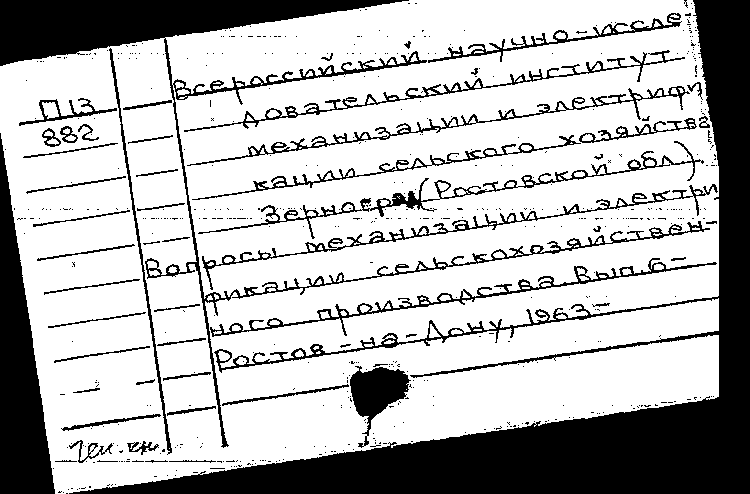 П13
882
Всероссийский научно-иссле-
довательский институт
механизации и электрифи
кации сельского хозяйства
(Ростовской обл)
Вопросы механизации и электри
фикации сельскохозяйствен-
ного производства. Вып.6-
Ростов-на-Дону, 1963-